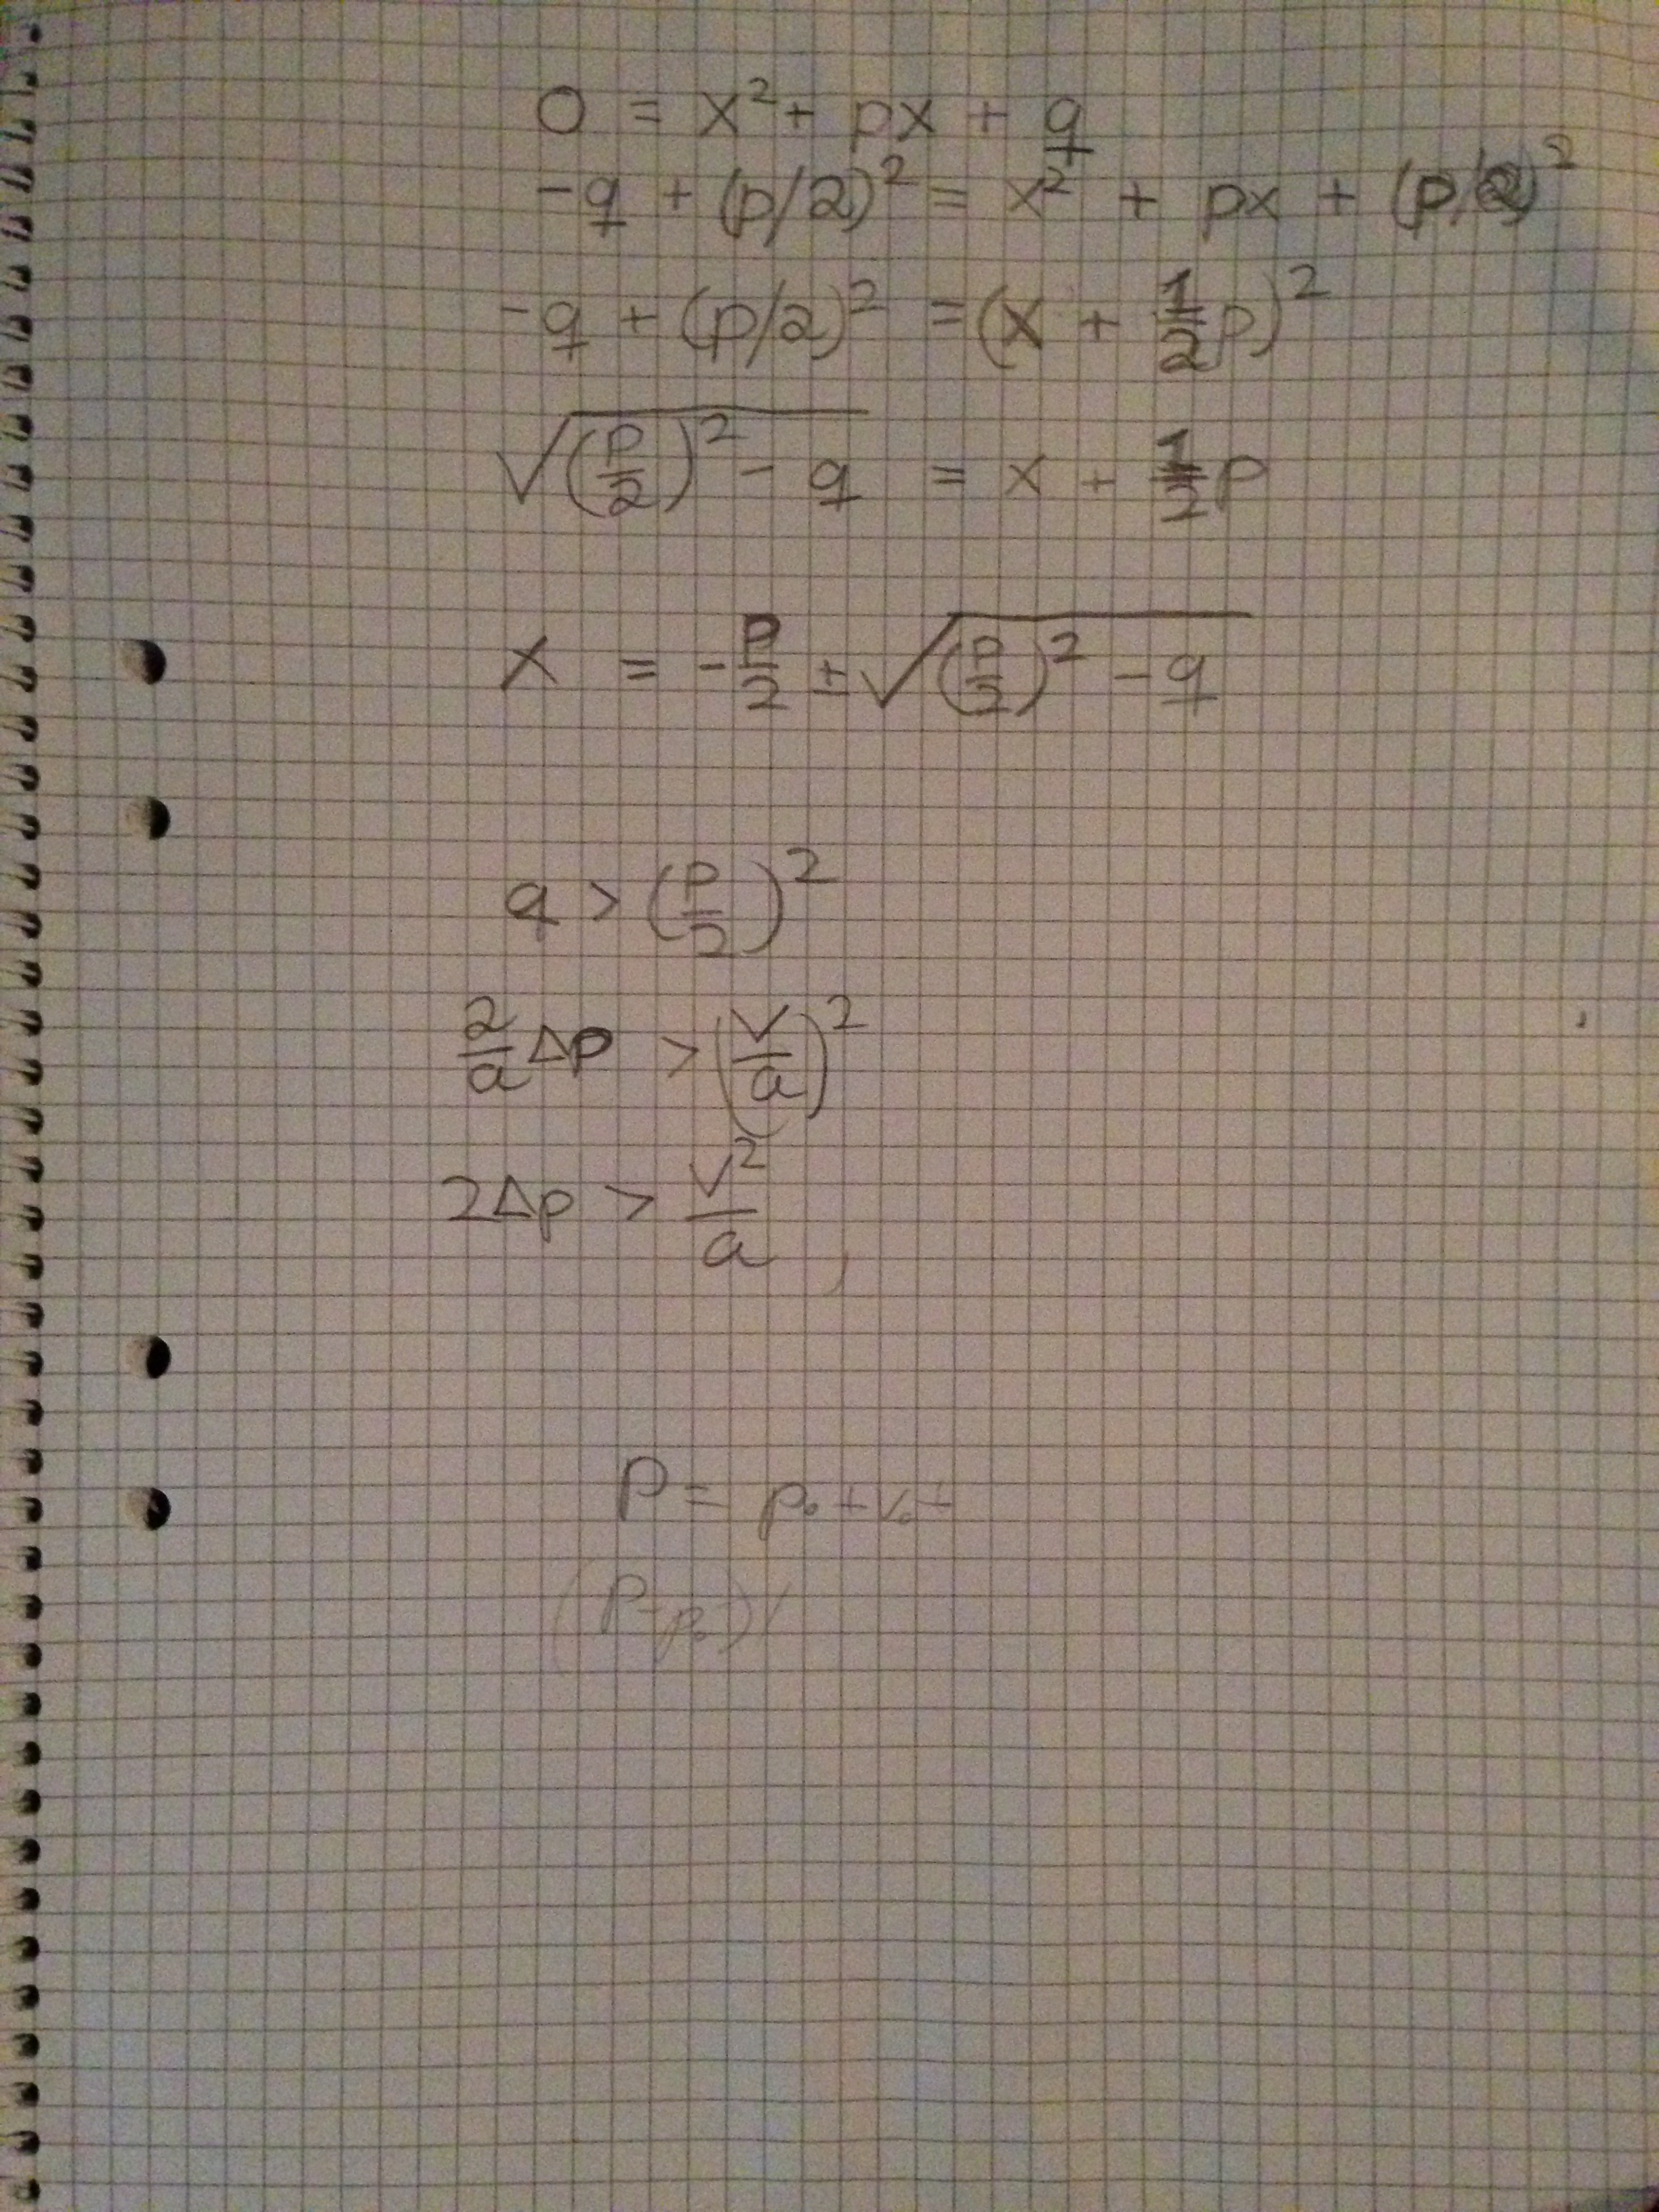 0 = x² + px + q
-q + (p/2)² = x² + px + (p/2)²
-q + (p/2)² = (x + 1/2 p)²
√((p/2)² - q) = x + 1/2 p
x = -p/2 ± √((p/2)² - q)
q > (p/2)²
2/a Δp > (v/a)²
2Δp > v²/a
P = p₀ + v₀ +
(P-p₀)/